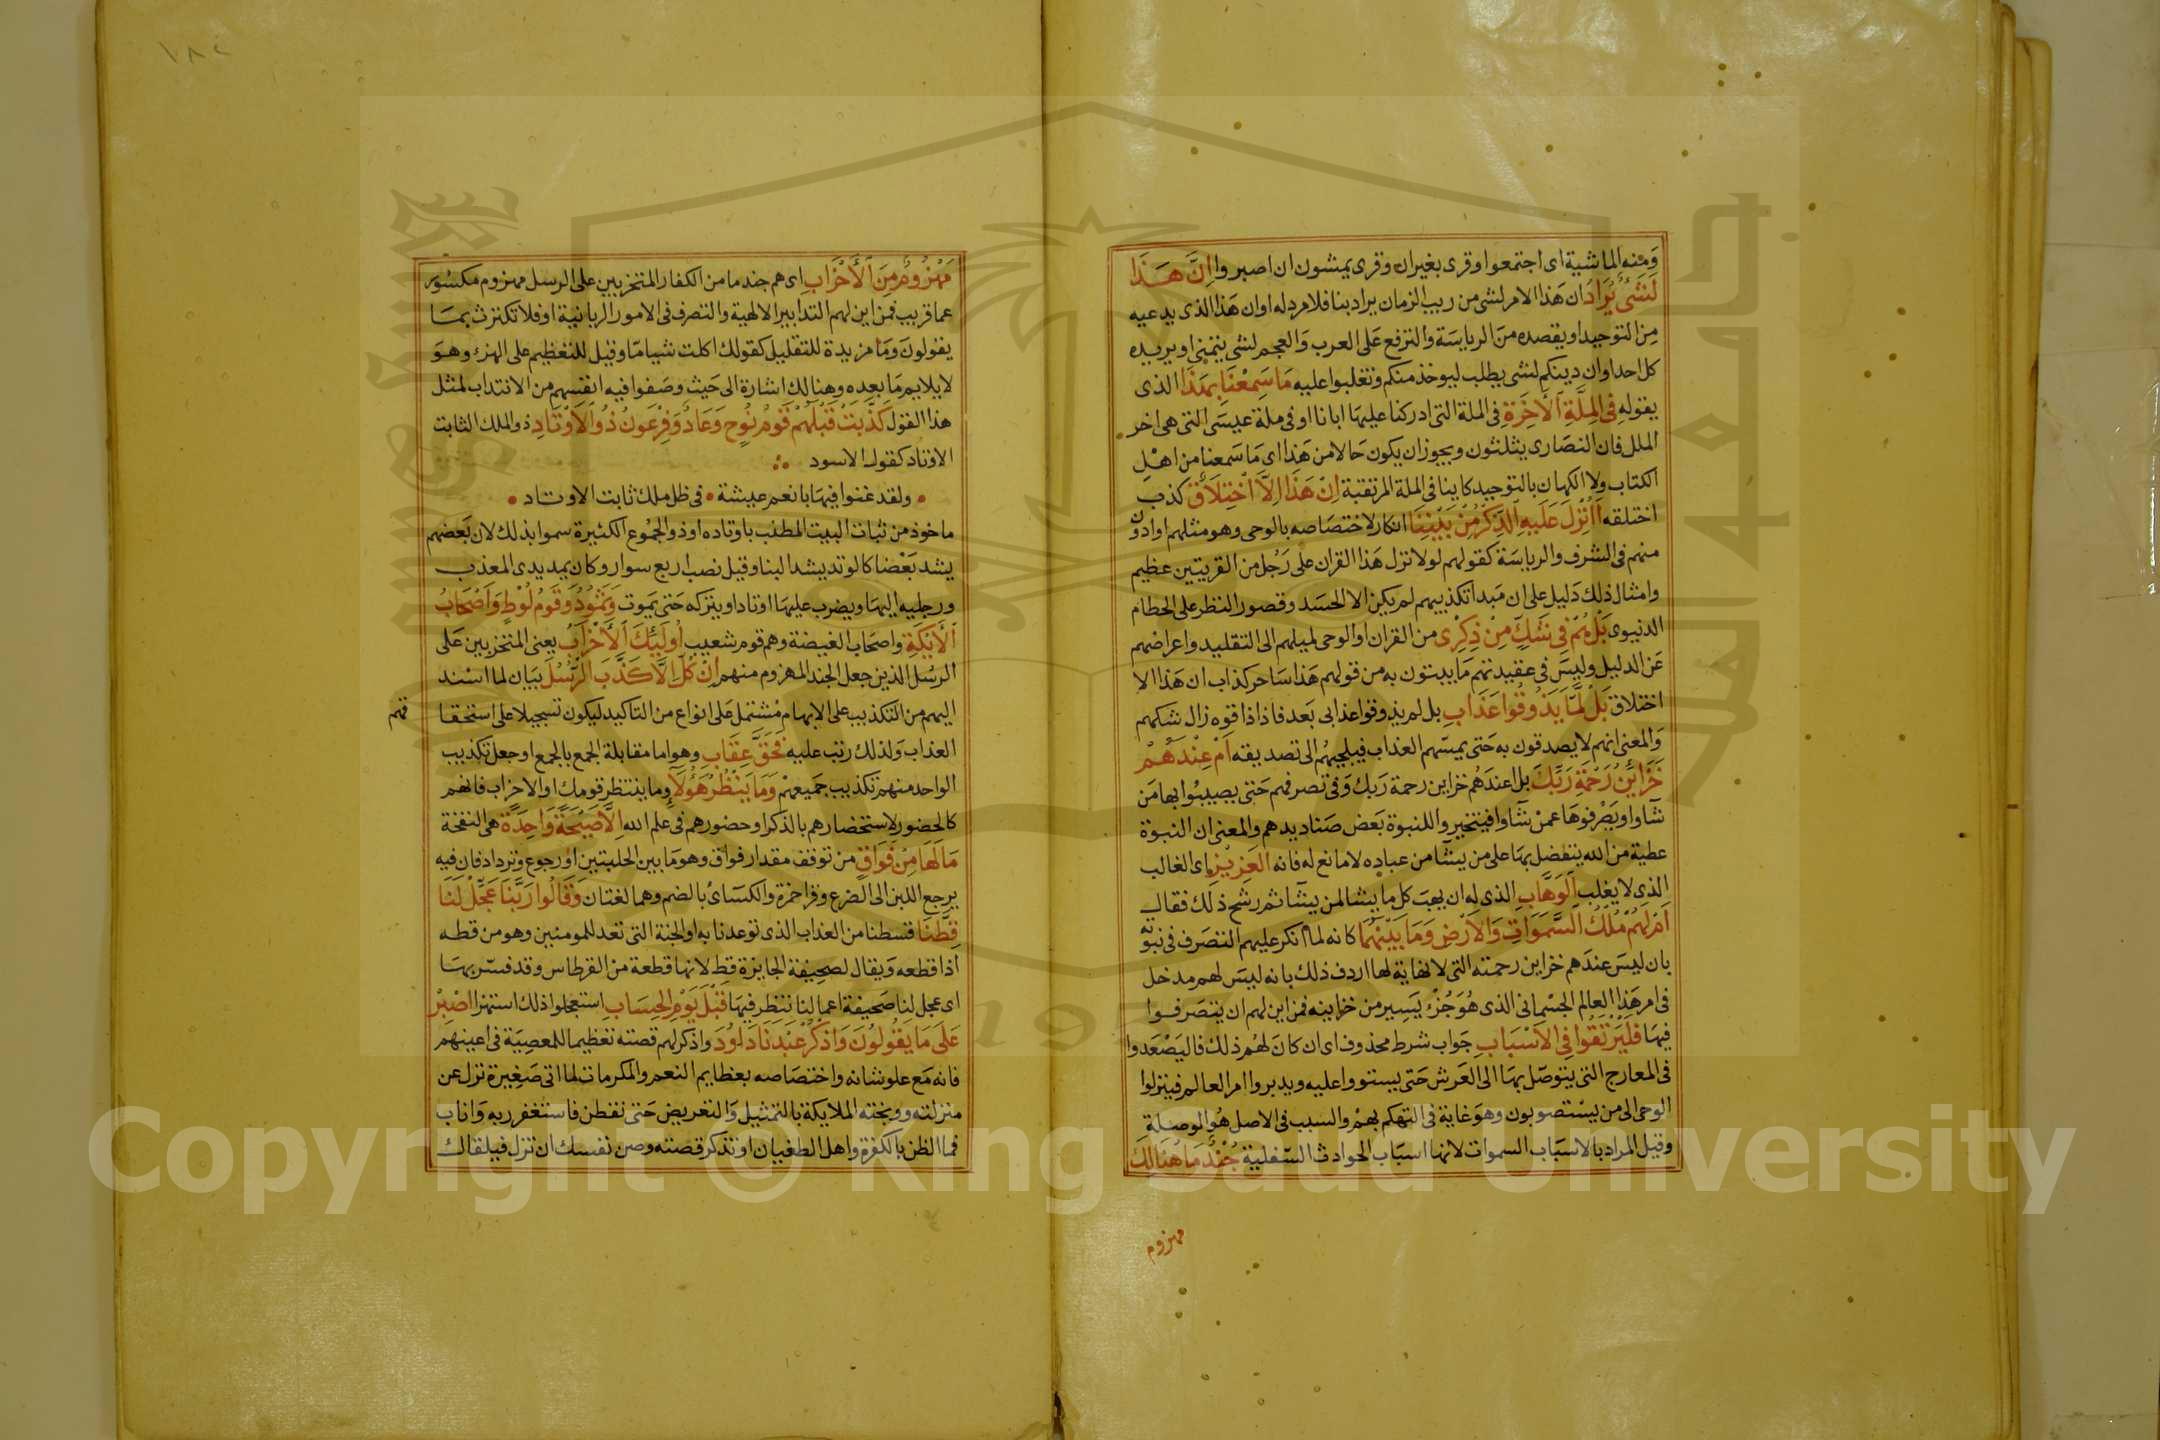 ومنه الماشية اى اجتمعوا وقرى بغيران وقرى يمشون ان اصبروا اِنَّ هَذَا
لَشَىْءٌ يُرَادُ ان هذا الامر لشئ من ريب الزمان يراد بنا فلا مرد له او ان هذا الذى يدعيه
من التوحيد او يقصده من الرياسة والترفع على العرب والعجم لشئ يتمنى او يريده
كل احد او ان دينكم لشئ يطلب ليوخذ منكم وتغلبوا عليه مَا سَمِعْنَا بِهَذَا الذى
يقوله فِى الْمِلَّةِ اَلْاَخِرَةِ فى الملة التى ادركنا عليها ابانا او فى ملة عيسى التى هى اخر
الملل فان النصارى يثلثون ويجوز ان يكون حالا من هذا اى ما سمعنا من اهل
الكتاب ولا الكهان بالتوحيد كاينا فى الملة المرتقبة اِنْ هَذَا اِلَّا اخْتِلَاقٌ كذب
اختلقه اَاُنْزِلَ عَلَيهِ الذِّكْرُ مِنْ بَيْنِنَا انكار لاختصاصه بالوحى وهو مثلهم او ادون
منهم فى الشرف والرياسة كقولهم لولا نزل هذا القران على رجل من القريتين عظيم
وامثال ذلك دليل على ان مبدا تكذيبهم لم يكن الا الحسد وقصور النظر على الحطام
الدنيوى بَلْ هُمْ فِى شَكٍّ مِنْ ذِكْرِى من القران او الوحى لميلهم الى التقليد واعراضهم
عن الدليل وليس فى عقيدتهم ما يبتون به من قولهم هذا ساحر كذاب ان هذا الا
اختلاق بَلْ لَمَّا يَذُوقُوا عَذَابِ بل لم يذوقوا عذابى بعد فاذا ذاقوه زال شكهم
والمعنى انهم لا يصدقون به حتى يمسهم العذاب فيلجيهم الى تصديقه اَمْ عِنْدَهُمْ
خَزَائِنُ رَحْمَةِ رَبِّكَ بل اعندهم خزاين رحمة ربك وفى تصرفهم حتى يصيبوا بها من
شاوا ويصرفوها عمن شاوا فيتخيروا للنبوة بعض صناديدهم والمعنى ان النبوة
عطية من الله يتفضل بها على من يشا من عباده لا مانع له فانه العَزِيْز اى الغالب
الذى لا يغلب اَلْوَهَّابِ الذى له ان يهب كل ما يشا لمن يشا ثم رشح ذلك فقال
اَمْ لَهُمْ مُلْكُ السَّمَوَاتِ وَالْاَرْضِ وَمَا بَيْنَهُمَا كانه لما انكر عليهم التصرف فى نبوته
بان ليس عندهم خزاين رحمته التى لا نهاية لها اردف ذلك بانه ليس لهم مدخل
فى امر هذا العالم الجسمانى الذى هو جزء يسير من خزاينه فمن اين لهم ان يتصرفوا
فيها فَلْيَرْتَقُوا فِى الْاَسْبَابِ جواب شرط محذوف اى ان كان لهم ذلك فاليصعدوا
فى المعارج التى يتوصل بها الى العرش حتى يستووا عليه ويدبروا امر العالم فينزلوا
الوحى الى من يستصوبون وهو غاية فى التهكم بهم والسبب فى الاصل هو الوصلة
وقيل المراد بالاسباب السموات لانها اسباب الحوادث السفلية جُنْدٌ مَا هُنَالِكَ
مهزوم
١٨٢
مَهْزُومٌ مِنَ اَلْاَحْزَابِ اى هم جند ما من الكفار المتحزبين على الرسل مهزوم مكسور
عما قريب فمن اين لهم التدابير الالهية والتصرف فى الامور الربانية او فلا تكترث بما
يقولون وما مزيدة للتقليل كقولك اكلت شيا ما وقيل للتعظيم على الهزء وهو
لا يلايم ما بعده وهنالك اشارة الى حيث وضعوا فيه انفسهم من الانتداب لمثل
هذا القول كَذَّبَتْ قَبْلَهُمْ قَوْمُ نُوحٍ وَعَادٌ وَفِرْعَوْنُ ذُو الْاَوْتَادِ ذو الملك الثابت
الاوتاد كقول الاسود
ولقد غنوا فيها بانعم عيشة • فى ظل ملك ثابت الاوتاد
ماخوذ من ثبات البيت المطنب باوتاده او ذو الجموع الكثيرة سموا بذلك لان بعضهم
يشد بعضا كالوتد يشد البنا وقيل نصب اربع سوار وكان يمد يدى المعذب
ورجليه اليها ويضرب عليها اوتادا ويتركه حتى يموت وَثَمُودُ وَقَوْمُ لُوْطٍ وَاَصْحَابُ
اَلْاَيْكَةِ واصحاب الغيضة وهم قوم شعيب اُولَئِكَ اَلْاَحْزَابُ يعنى المتحزبين على
الرسل الذين جعل الجند المهزوم منهم اِنْ كُلٌّ اِلَّا كَذَّبَ الرُّسُلَ بيان لما اسند
اليهم من التكذيب على الابهام مشتمل على انواع من التاكيد ليكون تسجيلا على استحقا
قهم
العذاب ولذلك رتب عليه فَحَقَّ عِقَابِ وهو اما مقابلة الجمع بالجمع او جعل تكذيب
الواحد منهم تكذيب جميعهم وَمَا يَنْظُرُ هَؤُلَاءِ وما ينتظر قومك او الاحزاب فانهم
كالحضور لاستحضارهم بالذكر او حضورهم فى علم الله اِلَّا صَيْحَةً وَاحِدَةً هى النفخة
مَا لَهَا مِنْ فَوَاقٍ من توقف مقدار فواق وهو ما بين الحلبتين او رجوع وترداد فان فيه
يرجع اللبن الى الضرع وقرا حمزة والكساى بالضم وهما لغتان وَقَالُوا رَبَّنَا عَجِّلْ لَنَا
قِطَّنَا قسطنا من العذاب الذى توعدنا به او الجنة التى تعد للمومنين وهو من قطه
اذا قطعه ويقال لصحيفة الجايزة قط لانها قطعة من القرطاس وقد فسر بها
اى عجل لنا صحيفة اعمالنا ننظر فيها قَبْلَ يَوْمِ الْحِسَابِ استعجلوا ذلك استهزا اصْبِرْ
عَلَى مَا يَقُولُونَ وَاذْكُرْ عَبْدَنَا دَاوُدَ واذكر لهم قصته تعظيما للمعصية فى اعينهم
فانه مع علو شانه واختصاصه بعظايم النعم والمكرمات لما اتى صغيرة نزل عن
منزلته ووبخته الملايكة بالتمثيل والتعريض حتى تفطن فاستغفر ربه واناب
فما الظن بالكفرة واهل الطغيان او تذكر قصته وصن نفسك ان تزل فيلقاك
Copyright © King Saud University